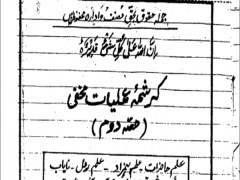 جملہ حقوق بحق مصنف و ادارہ محفوظ ہیں
اِنَّ اللّٰهَ عَلٰى كُلِّ شَىْءٍ قَدِيْرٌ
کرشمہ عملیات مخفی
(حصہ دوم)
علم حاضرات - علم ہمزاد - علم رمل - نایاب